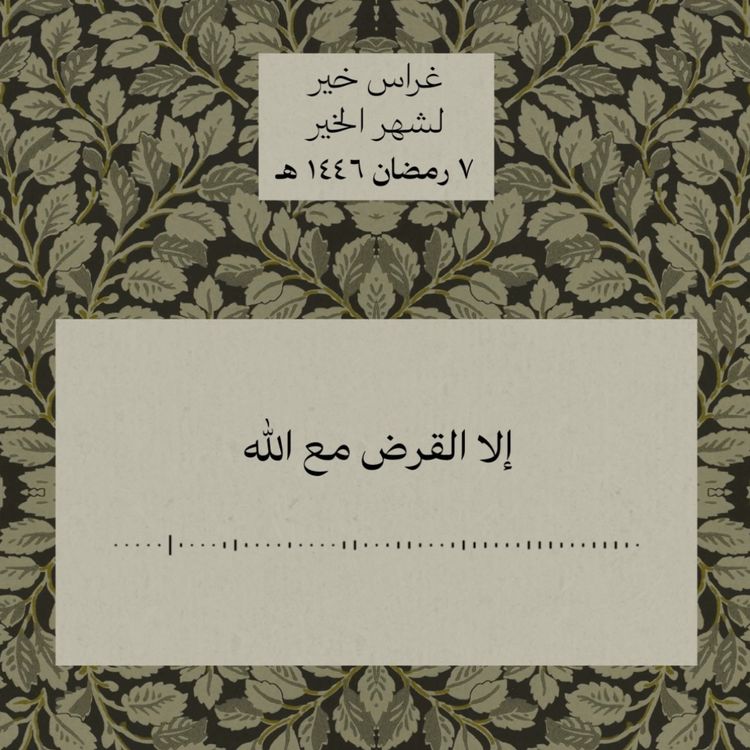 غراس خير
لشهر الخير
٧ رمضان ١٤٤٦ هـ
إلا القرض مع الله